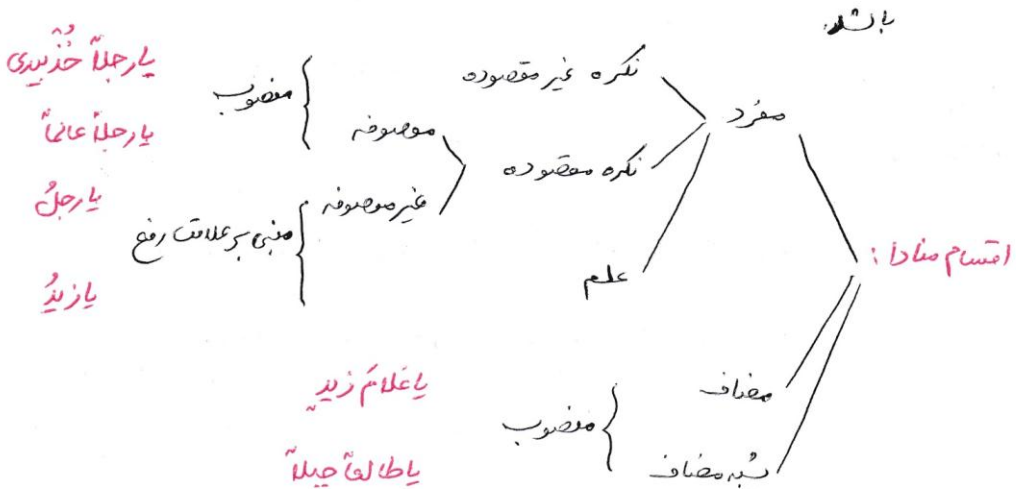 باشد.
اقسام منادا :
مفرد
نکره غیر مقصوده
نکره مقصوده
موصوفه
غیر موصوفه
علم
منصوب
مبنی بر علامت رفع
یا رجلاً خُذْ بیدی
یا رجلاً عالماً
یا رجلُ
یا زیدُ
مضاف
شبه مضاف
منصوب
یا غلامَ زیدٍ
یا طالعاً جبلاً